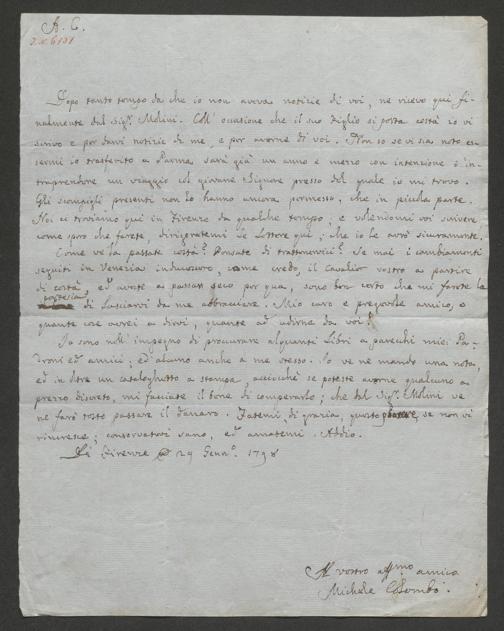 A. C.
Dopo tanto tempo da che io non aveva notizie di voi, ne ricevo qui fi-
nalmente dal Sig.r Molini. Coll' occasione che il suo Figlio si porta costà io vi
scrivo e per darvi notizie di me, e per averne di voi. Non so se vi sia noto es-
sermi io trasferito a Parma, sarà già un anno e mezzo con intenzione d' in-
traprendere un viaggio col giovane Signore presso del quale io mi trovo.
Gli scompigli presenti non lo hanno ancora permesso, che in picciola parte.
Noi ci troviamo qui in Firenze da qualche tempo; e volendomi voi scrivere
come spero che farete, dirigetemi le Lettere qui, che io le avrò sicuramente.
Come ve la passate costà? Pensate di trattenervici? Se mai i cambiamenti
seguiti in Venezia inducessero, come credo, il Cavalier vostro a partire
di costà, ed aveste a passar seco per qua, sono ben certo che mi farete la
cortesia di lasciarvi da me abbracciare. Mio caro e pregevole amico, o
quante cose avrei a dirvi, quante ad udirne da voi!
Io sono nell' impegno di procurare alquanti Libri a parecchi miei Pa-
droni ed amici; ed alcuno anche a me stesso. Io ve ne mando una nota,
ed in oltre un cataloghetto a stampa, acciocchè se poteste averne qualcuno a
prezzo discreto, mi facciate il bene di comperarlo; che dal Sig.r Molini ve
ne farò tosto passare il danaro. Fatemi, di grazia, questo piacere, se non vi
rincresce; conservatevi sano, ed amatemi. Addio.
Di Firenze 29 Genn.o 1798
Il vostro aff.mo amico
Michele Colombo.